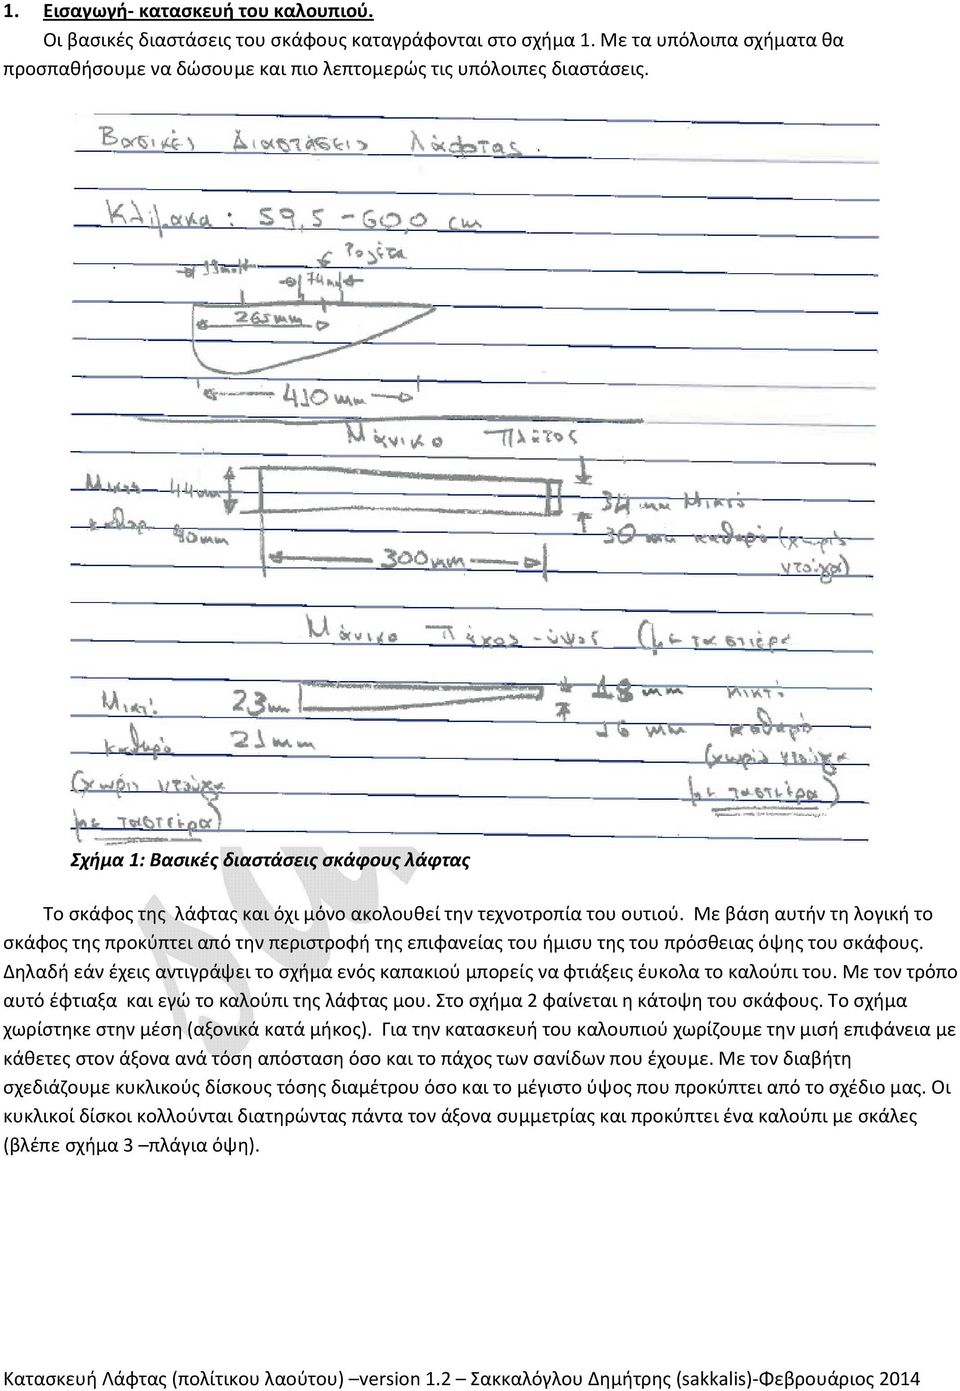 1. Εισαγωγή- κατασκευή του καλουπιού.
Οι βασικές διαστάσεις του σκάφους καταγράφονται στο σχήμα 1. Με τα υπόλοιπα σχήματα θα
προσπαθήσουμε να δώσουμε και πιο λεπτομερώς τις υπόλοιπες διαστάσεις.
Βασικές Διαστάσεις Λάφτας.
Κλίμακα : 59,5 - 60,0 cm
Ροζέτα
74mm
265mm
410 mm
Μάνικο Πλάτος
Μικτό 44mm
34 mm Μικτό
καθαρ. 40mm
30 mm καθαρό (χωρίς
ντούγα)
300mm
Μάνικο Πάχος - ύψος (με ταστιέρα
Μικτ. 23mm
18 mm μικτό
καθαρό 21mm
16 mm καθαρό
(χωρίς ντούγα
(χωρίς ντούγα
με ταστιέρα)
με ταστιέρα)
Σχήμα 1: Βασικές διαστάσεις σκάφους λάφτας
Το σκάφος της λάφτας και όχι μόνο ακολουθεί την τεχνοτροπία του ουτιού. Με βάση αυτήν τη λογική το
σκάφος της προκύπτει από την περιστροφή της επιφανείας του ήμισυ της του πρόσθειας όψης του σκάφους.
Δηλαδή εάν έχεις αντιγράψει το σχήμα ενός καπακιού μπορείς να φτιάξεις έυκολα το καλούπι του. Με τον τρόπο
αυτό έφτιαξα και εγώ το καλούπι της λάφτας μου. Στο σχήμα 2 φαίνεται η κάτοψη του σκάφους. Το σχήμα
χωρίστηκε στην μέση (αξονικά κατά μήκος). Για την κατασκευή του καλουπιού χωρίζουμε την μισή επιφάνεια με
κάθετες στον άξονα ανά τόση απόσταση όσο και το πάχος των σανίδων που έχουμε. Με τον διαβήτη
σχεδιάζουμε κυκλικούς δίσκους τόσης διαμέτρου όσο και το μέγιστο ύψος που προκύπτει από το σχέδιο μας. Οι
κυκλικοί δίσκοι κολλούνται διατηρώντας πάντα τον άξονα συμμετρίας και προκύπτει ένα καλούπι με σκάλες
(βλέπε σχήμα 3 –πλάγια όψη).
Κατασκευή Λάφτας (πολίτικου λαούτου) –version 1.2 – Σακκαλόγλου Δημήτρης (sakkalis)-Φεβρουάριος 2014